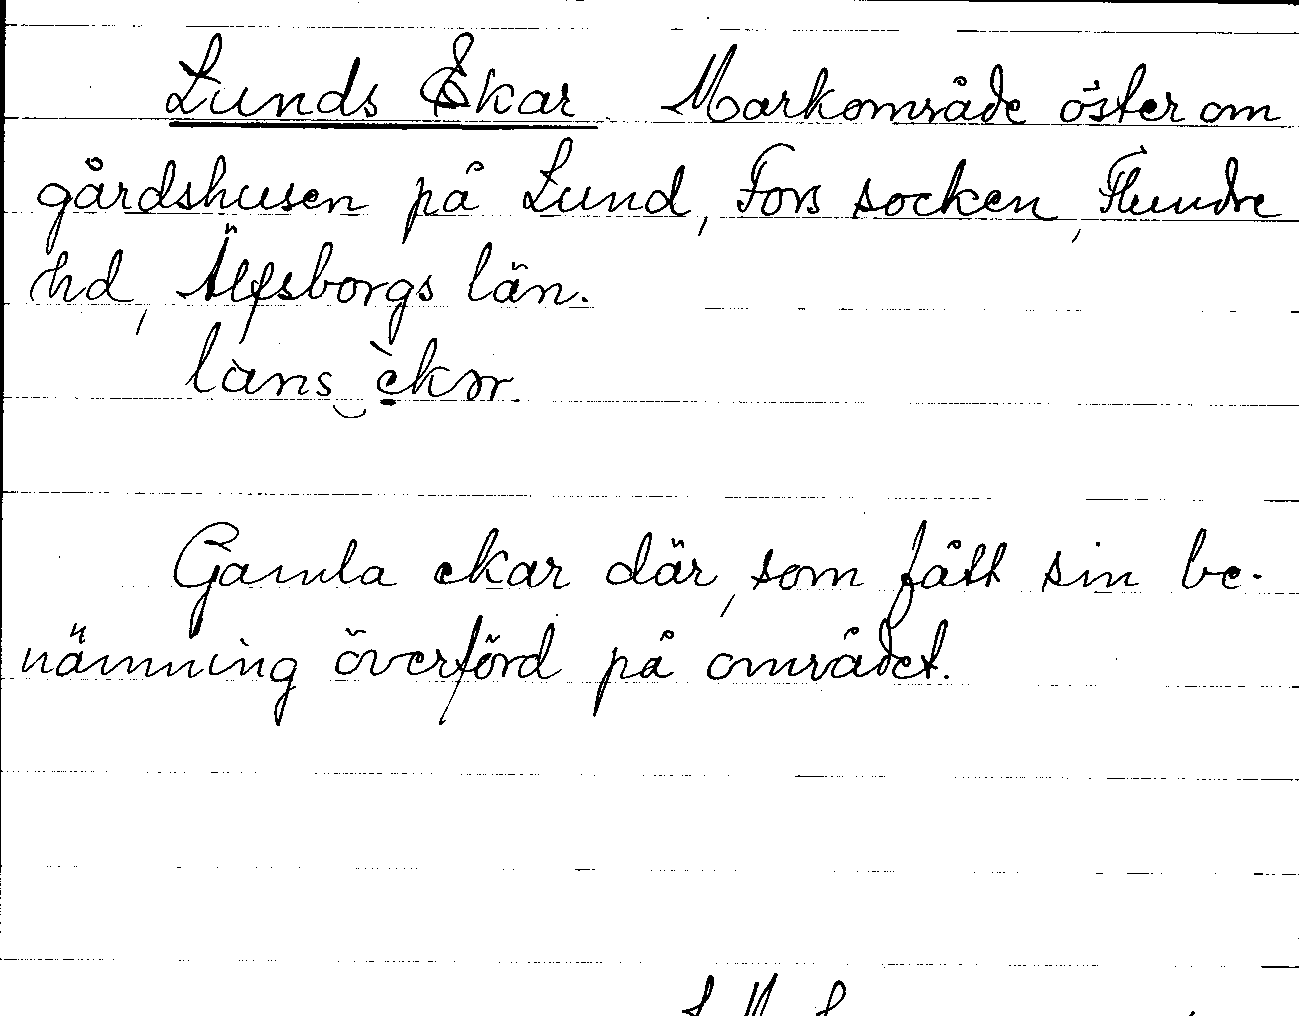 Lunds Ekar. Markområde öster om
gårdshusen på Lund, Fors socken, Flundre
hd, Älfsborgs län.
làns‿èkar.
Gamla ekar där, som fått sin be-
nämning överförd på området.